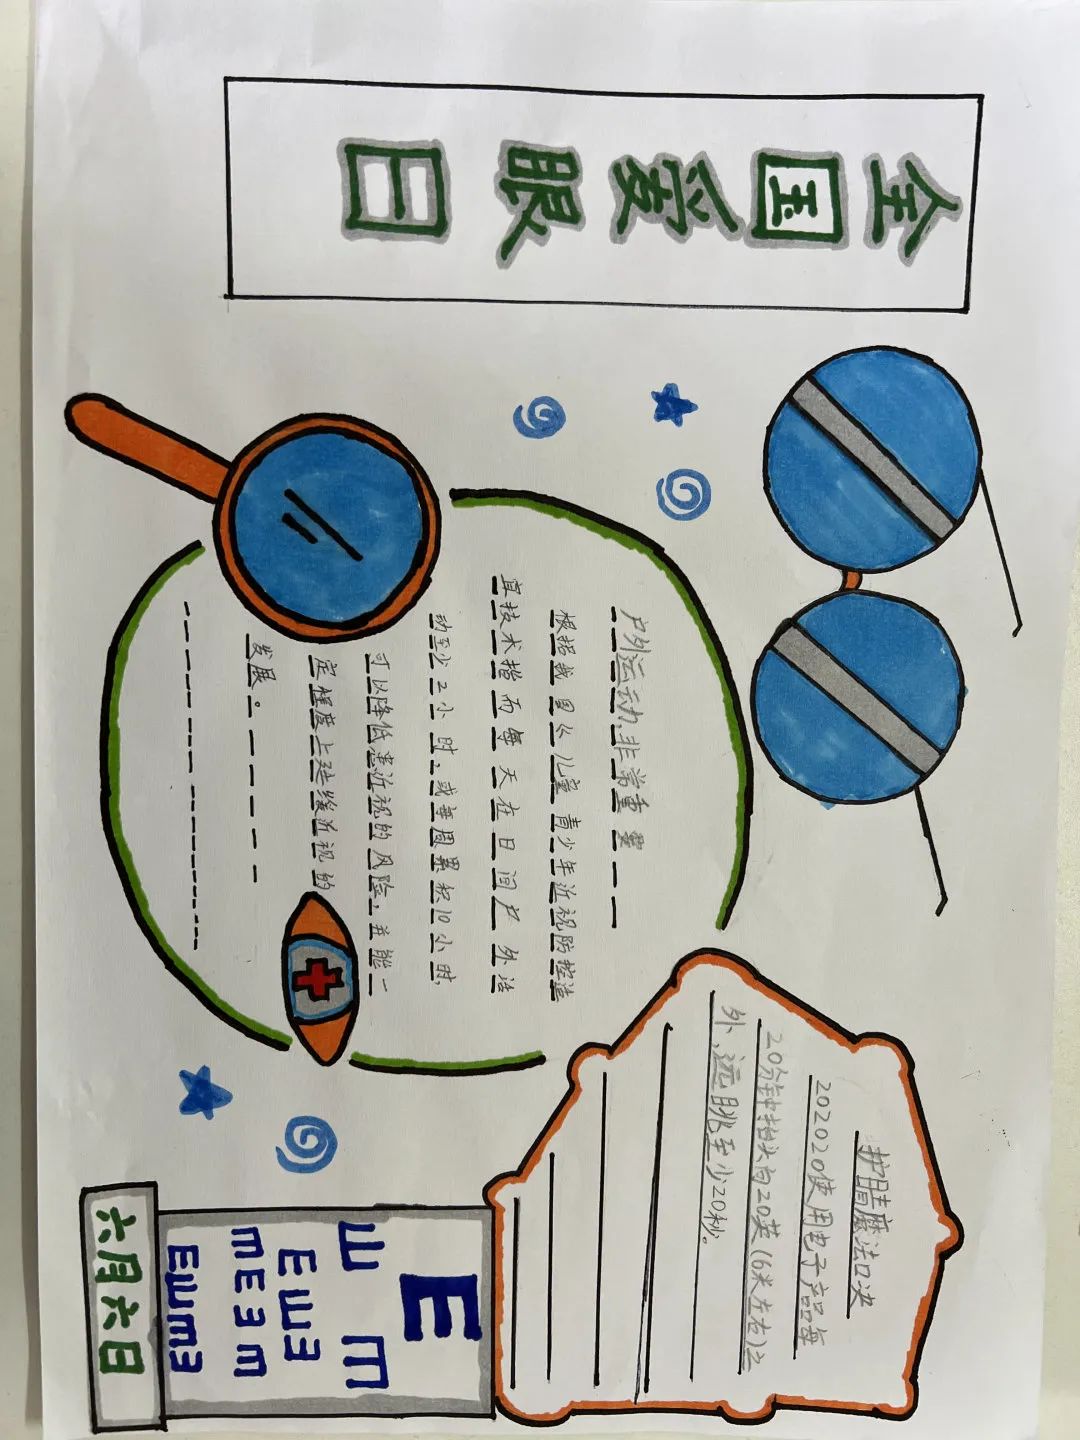 全国爱眼日
户外运动,非常重要
根据我国《儿童青少年近视防控适
宜技术指南每天在日间户外活
动至少2小时,或每周累积10小时,
可以降低患近视的风险,并能一
定程度上延缓近视的
发展。
护睛魔法口决
202020使用电子产品每
20分钟抬头向20英(6米左右)之
外,远眺至少20秒。
E
Ш m
E Ш 3
m E 3 m
E Ш m 3
六月六日